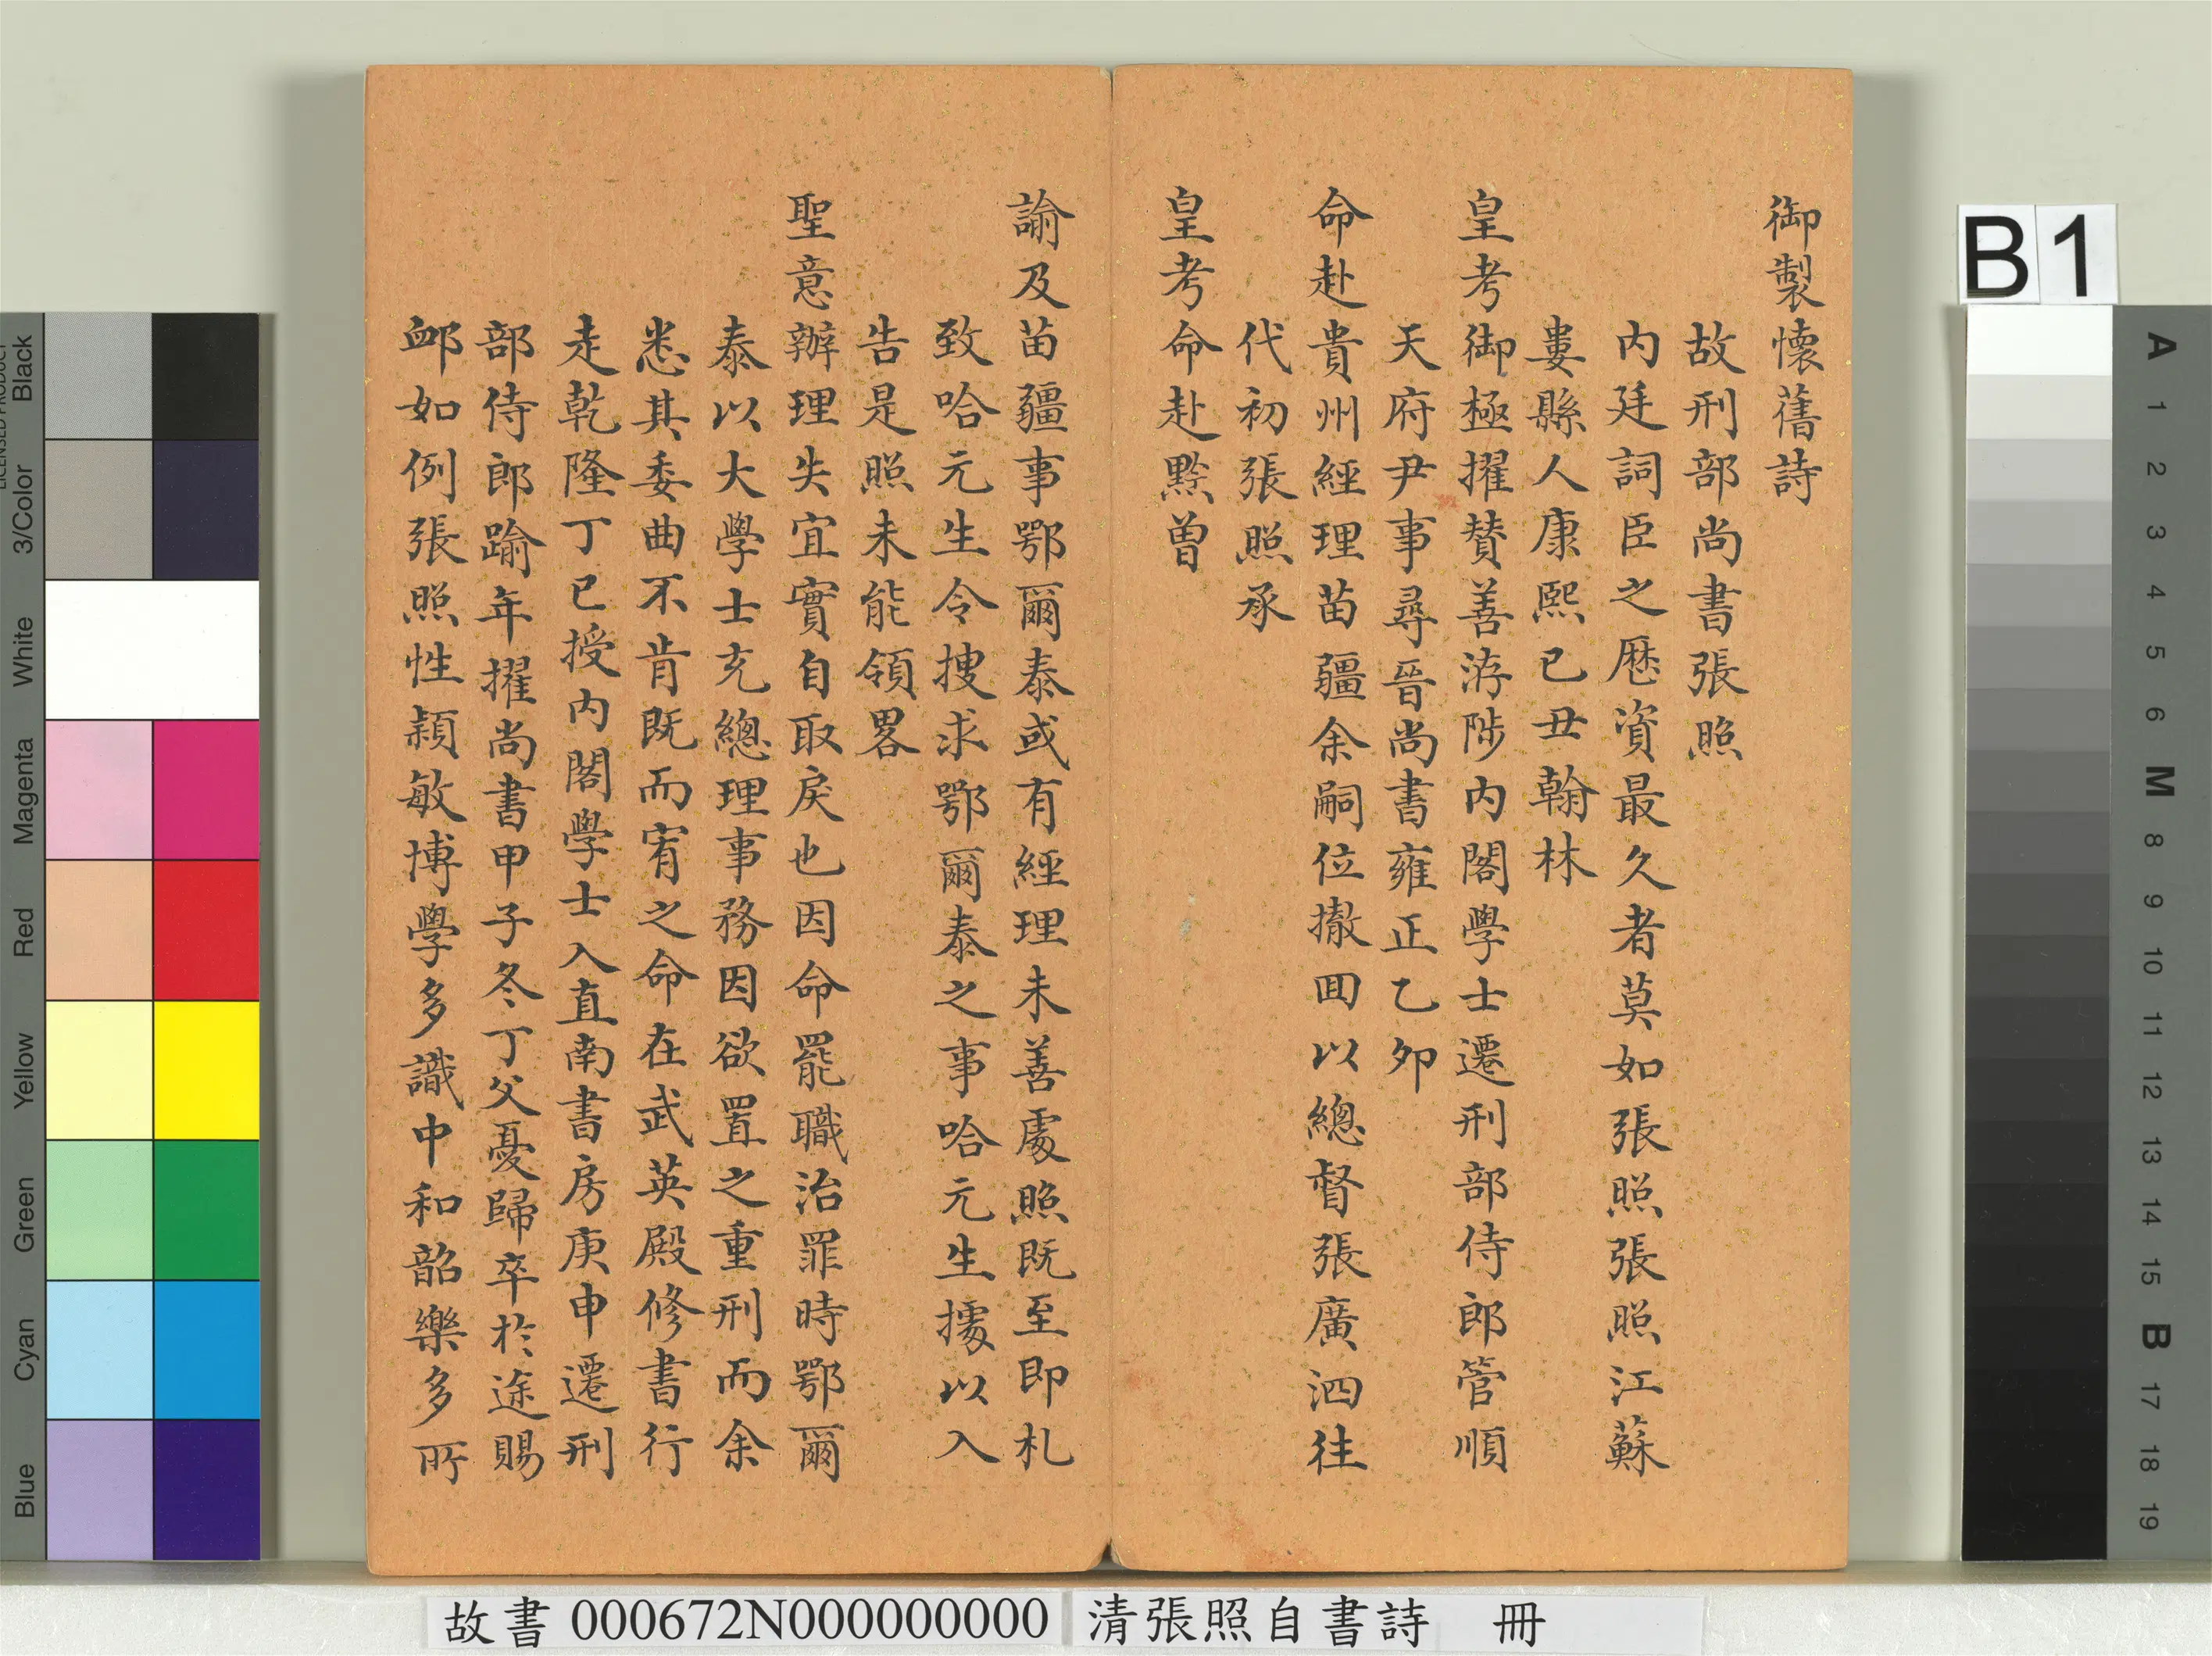 御製懷舊詩
故刑部尚書張照
內廷詞臣之歷資最久者莫如張照張照江蘇
婁縣人康熙已丑翰林
皇考御極擢贊善洊陟內閣學士遷刑部侍郎管順
天府尹事尋晉尚書雍正乙夘
命赴貴州經理苗疆余嗣位撤囬以總督張廣泗往
代初張照承
皇考命赴黔曽
諭及苗疆事鄂爾泰或有經理未善處照既至即札
致哈元生令捜求鄂爾泰之事哈元生據以入
告是照未能領畧
聖意辦理失宜實自取戾也因命罷職治罪時鄂爾
泰以大學士充總理事務因欲置之重刑而余
悉其委曲不肯既而宥之命在武英殿修書行
走乾隆丁已授內閣學士入直南書房庚申遷刑
部侍郎踰年擢尚書甲子冬丁父憂歸卒於途賜
衈如例張照性穎敏博學多識中和韶樂多所
B1
LICENSED PRODUCT
Black
3/Color
White
Magenta
Red
Yellow
Green
Cyan
Blue
A
1
2
3
4
5
6
M
8
9
10
11
12
13
14
15
B
17
18
19
故書 000672N000000000
清張照自書詩 冊